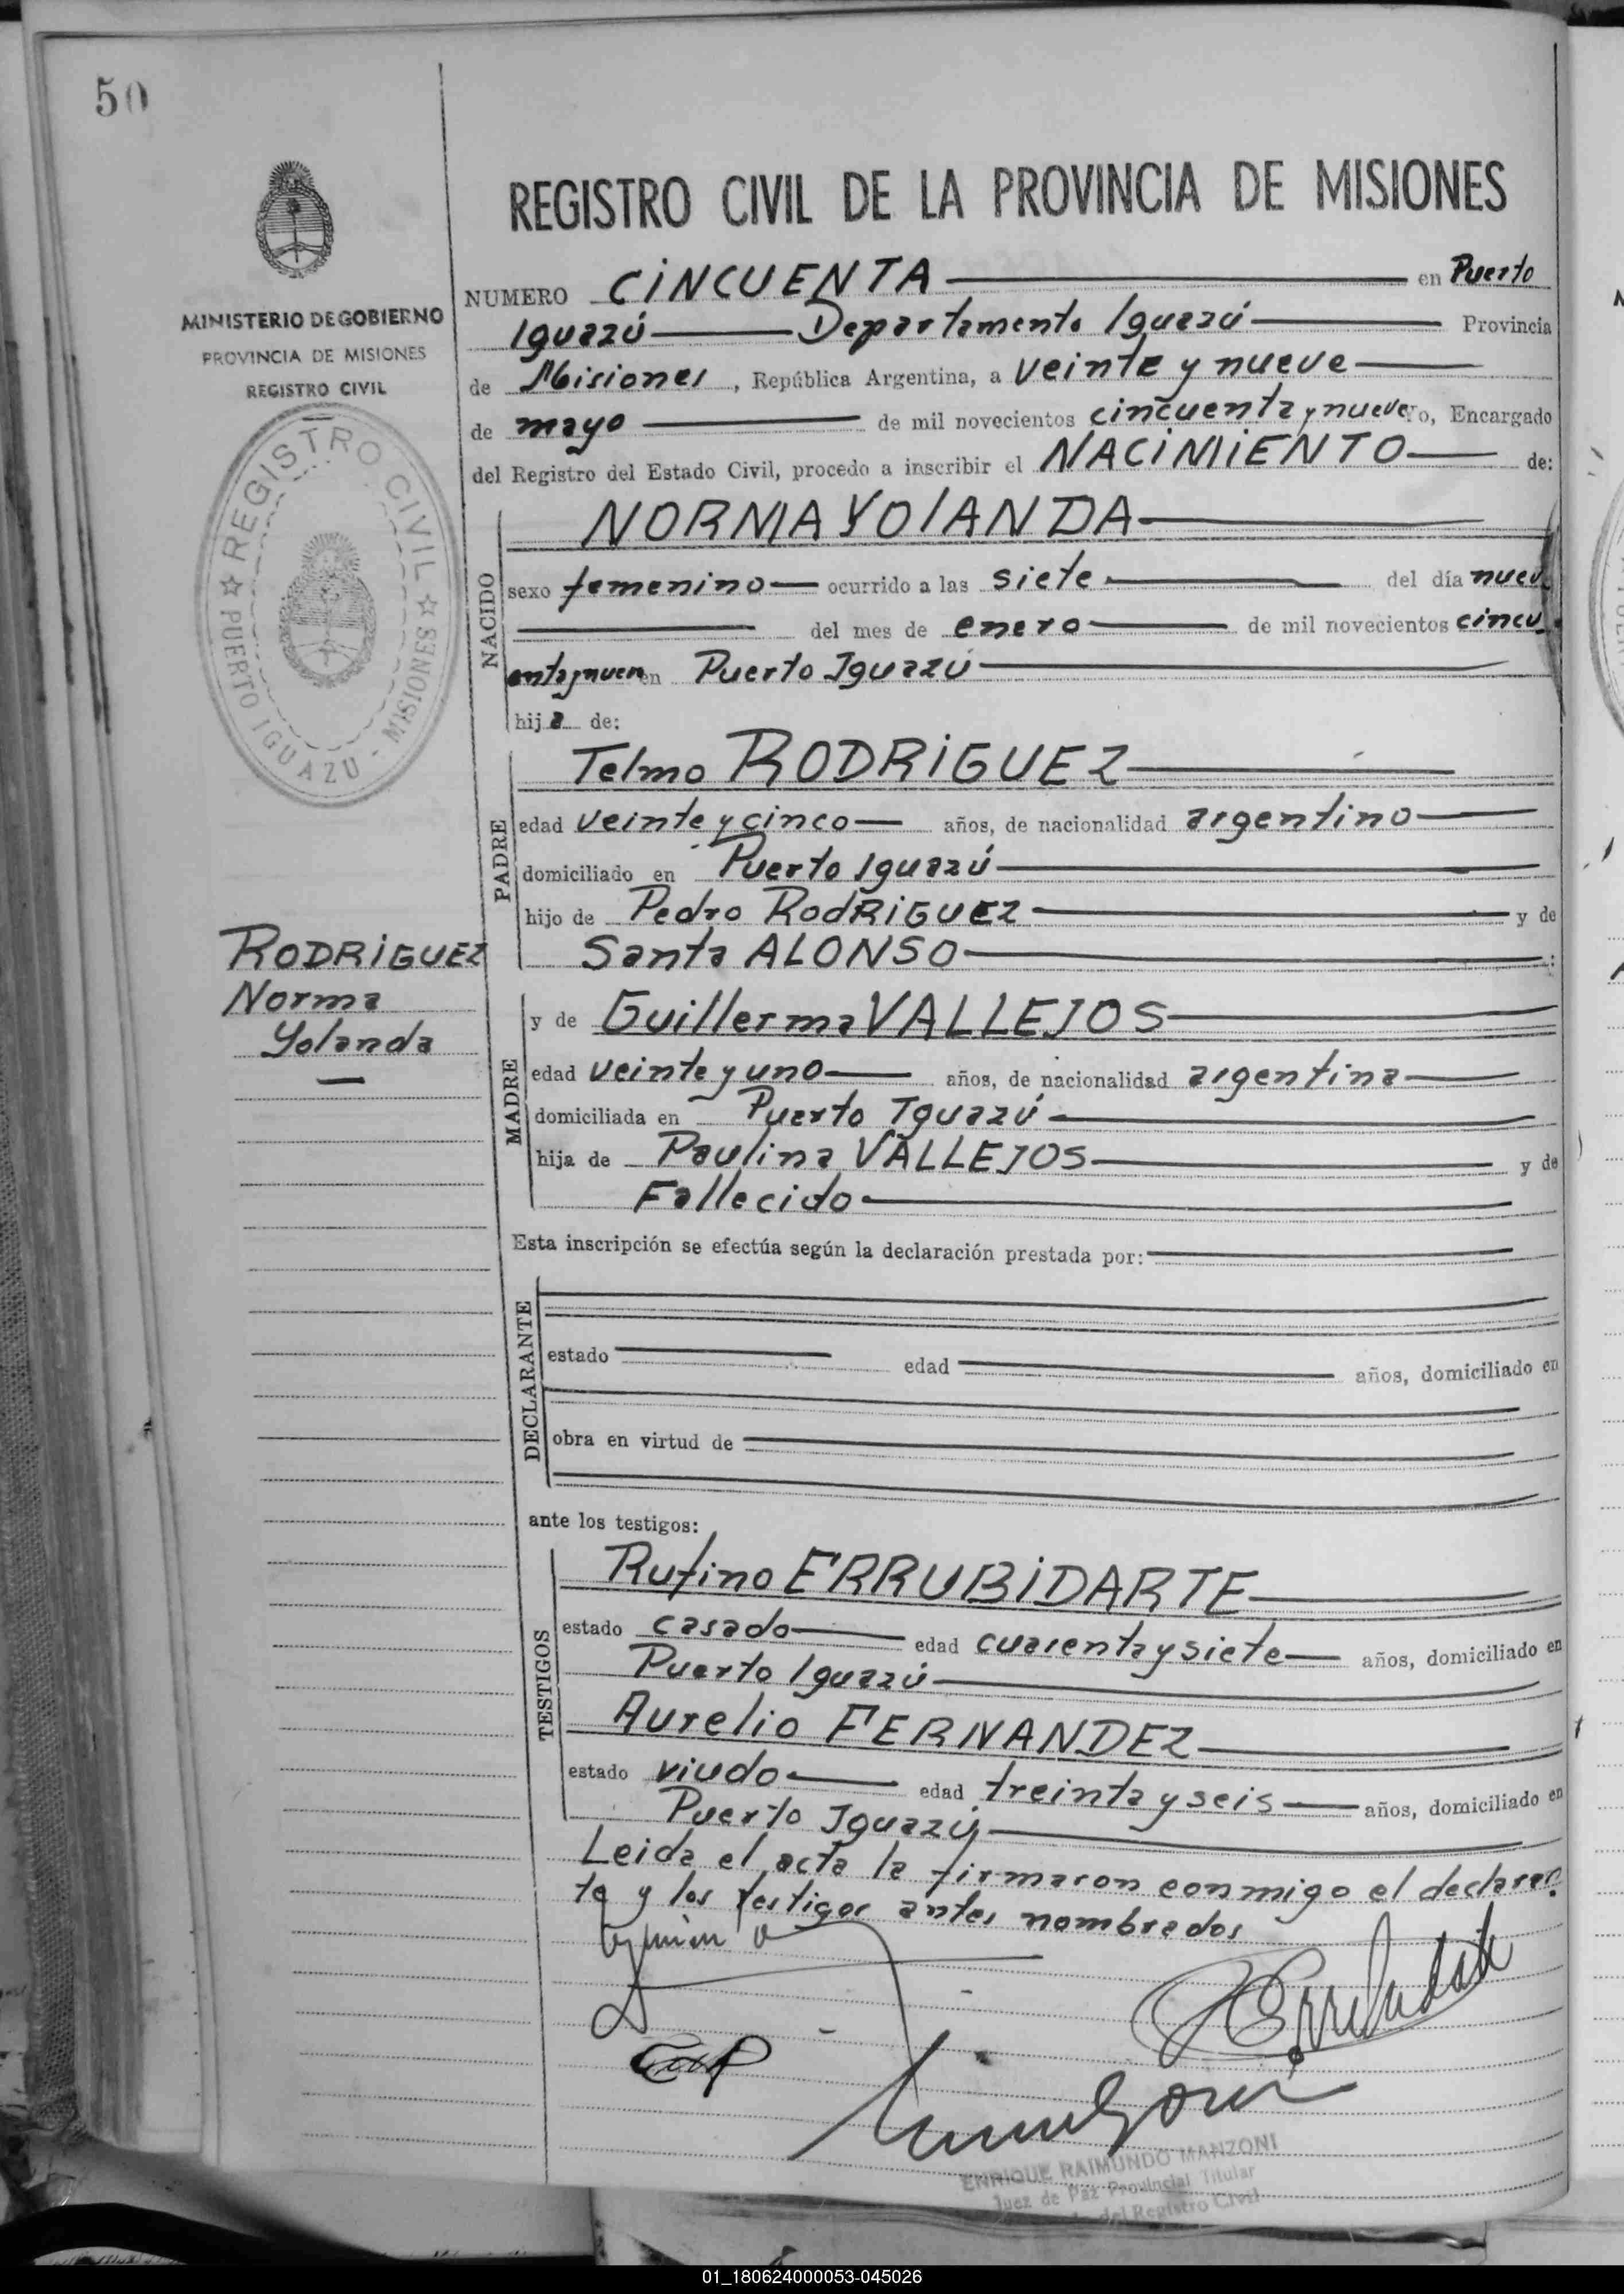 50
REGISTRO CIVIL DE LA PROVINCIA DE MISIONES
MINISTERIO DE GOBIERNO
PROVINCIA DE MISIONES
REGISTRO CIVIL
REGISTRO CIVIL
PUERTO IGUAZU - MISIONES
NUMERO CINCUENTA en Puerto
Iguazú Departamento Iguazú Provincia
de Misiones, República Argentina, a veinte y nueve
de mayo de mil novecientos cincuenta y nueve Yo, Encargado
del Registro del Estado Civil, procedo a inscribir el NACIMIENTO de:
NACIDO
NORMA YOLANDA
sexo femenino ocurrido a las siete del día nueve
del mes de enero de mil novecientos cincu
enta y nueve en Puerto Iguazú
hija de:
PADRE
Telmo RODRIGUEZ
edad veinte y cinco años, de nacionalidad argentino
domiciliado en Puerto Iguazú
hijo de Pedro RODRIGUEZ y de
Santa ALONSO :
RODRIGUEZ
Norma
Yolanda
MADRE
y de Guillerma VALLEJOS
edad veinte y uno años, de nacionalidad argentina
domiciliada en Puerto Iguazú
hija de Paulina VALLEJOS y de
Fallecido
Esta inscripción se efectúa según la declaración prestada por:
DECLARANTE
estado edad años, domiciliado en
obra en virtud de
ante los testigos:
TESTIGOS
Rufino ERRUBIDARTE
estado casado edad cuarenta y siete años, domiciliado en
Puerto Iguazú
Aurelio FERNANDEZ
estado viudo edad treinta y seis años, domiciliado en
Puerto Iguazú
Leida el acta la firmaron conmigo el declaran
te y los testigos antes nombrados
ENRIQUE RAIMUNDO MANZONI
Juez de Paz Provincial Titular
del Registro Civil
01_180624000053-045026